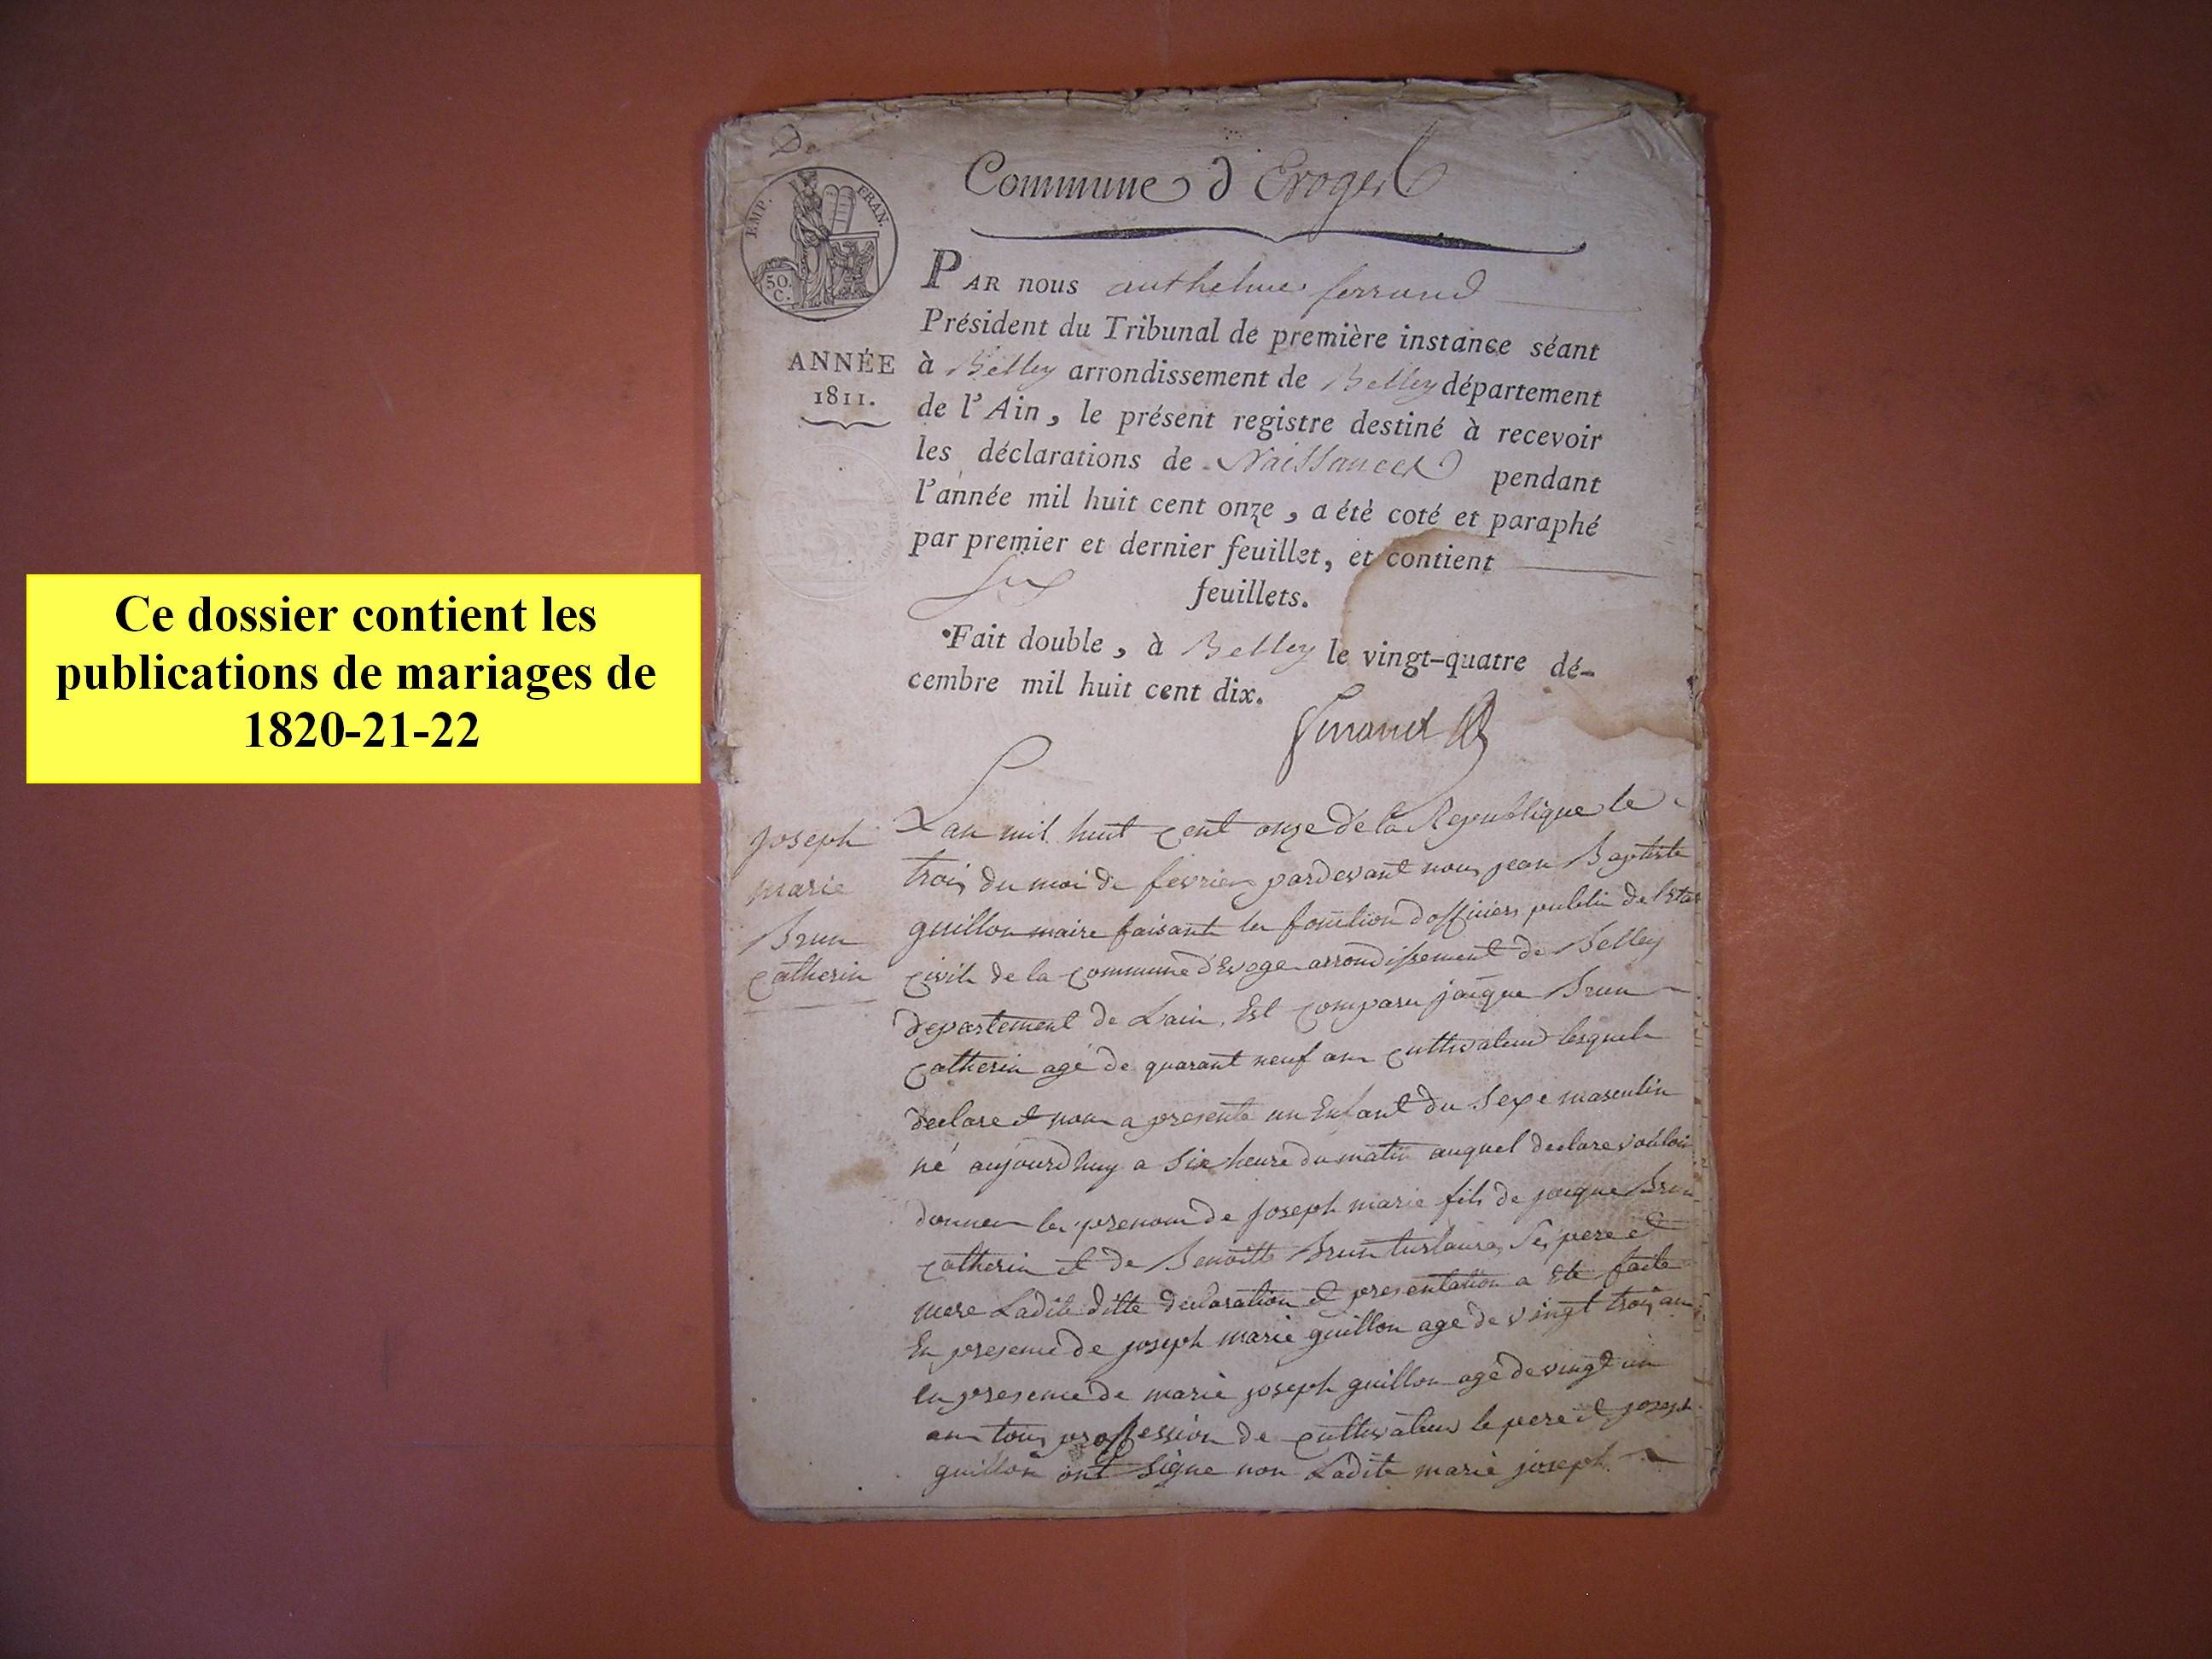 Ce dossier contient les
publications de mariages de
1820-21-22
EMP. FRAN.
50.
C.
ANNÉE
1811.
Commune d'Evoges
PAR nous anthelme ferrand
Président du Tribunal de première instance séant
à Belley arrondissement de Belley département
de l'Ain, le présent registre destiné à recevoir
les déclarations de Naissances pendant
l'année mil huit cent onze, a été coté et paraphé
par premier et dernier feuillet, et contient
six feuillets.
Fait double, à Belley le vingt-quatre dé-
cembre mil huit cent dix.
joseph
marie
Brun
Catherin
Lan mil huit cent onze de la Republique le
trois du moi de fevrier pardevant nous jean Baptiste
guillon maire faisant les fonction dofficier public de l'état
civile de la commune d'Evoge arrondissement de Belley
departement de Lain, Est comparu jaique Brun
catherin agé de quarant neuf ans cultivateur lesquele
declare et nous a presenté un Enfant du sexe masculin
né aujourdhuy a six heure du matin auquel declare vouloir
donner les prenom de joseph marie fils de jaique Brun
catherin et de Benoitte Brun ses pere et
mere Ladite ditte declaration et presentation a été faite
En presence de joseph marie guillon age de vingt trois ans
en presence de marie joseph guillon agé de vingt un
ans tous proffession de cultivateur le pere et joseph
guillon ont signe non Ladite marie joseph